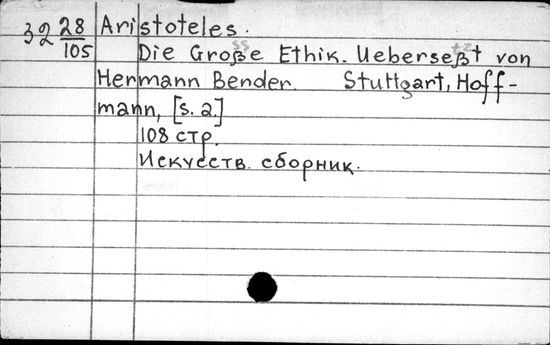 32 28/105 Aristoteles.
Die Große Ethik. Ueberseßt von
Hermann Bender. Stuttgart, Hoff-
mann, [s. a.]
108 стр.
Искусств. сборник.